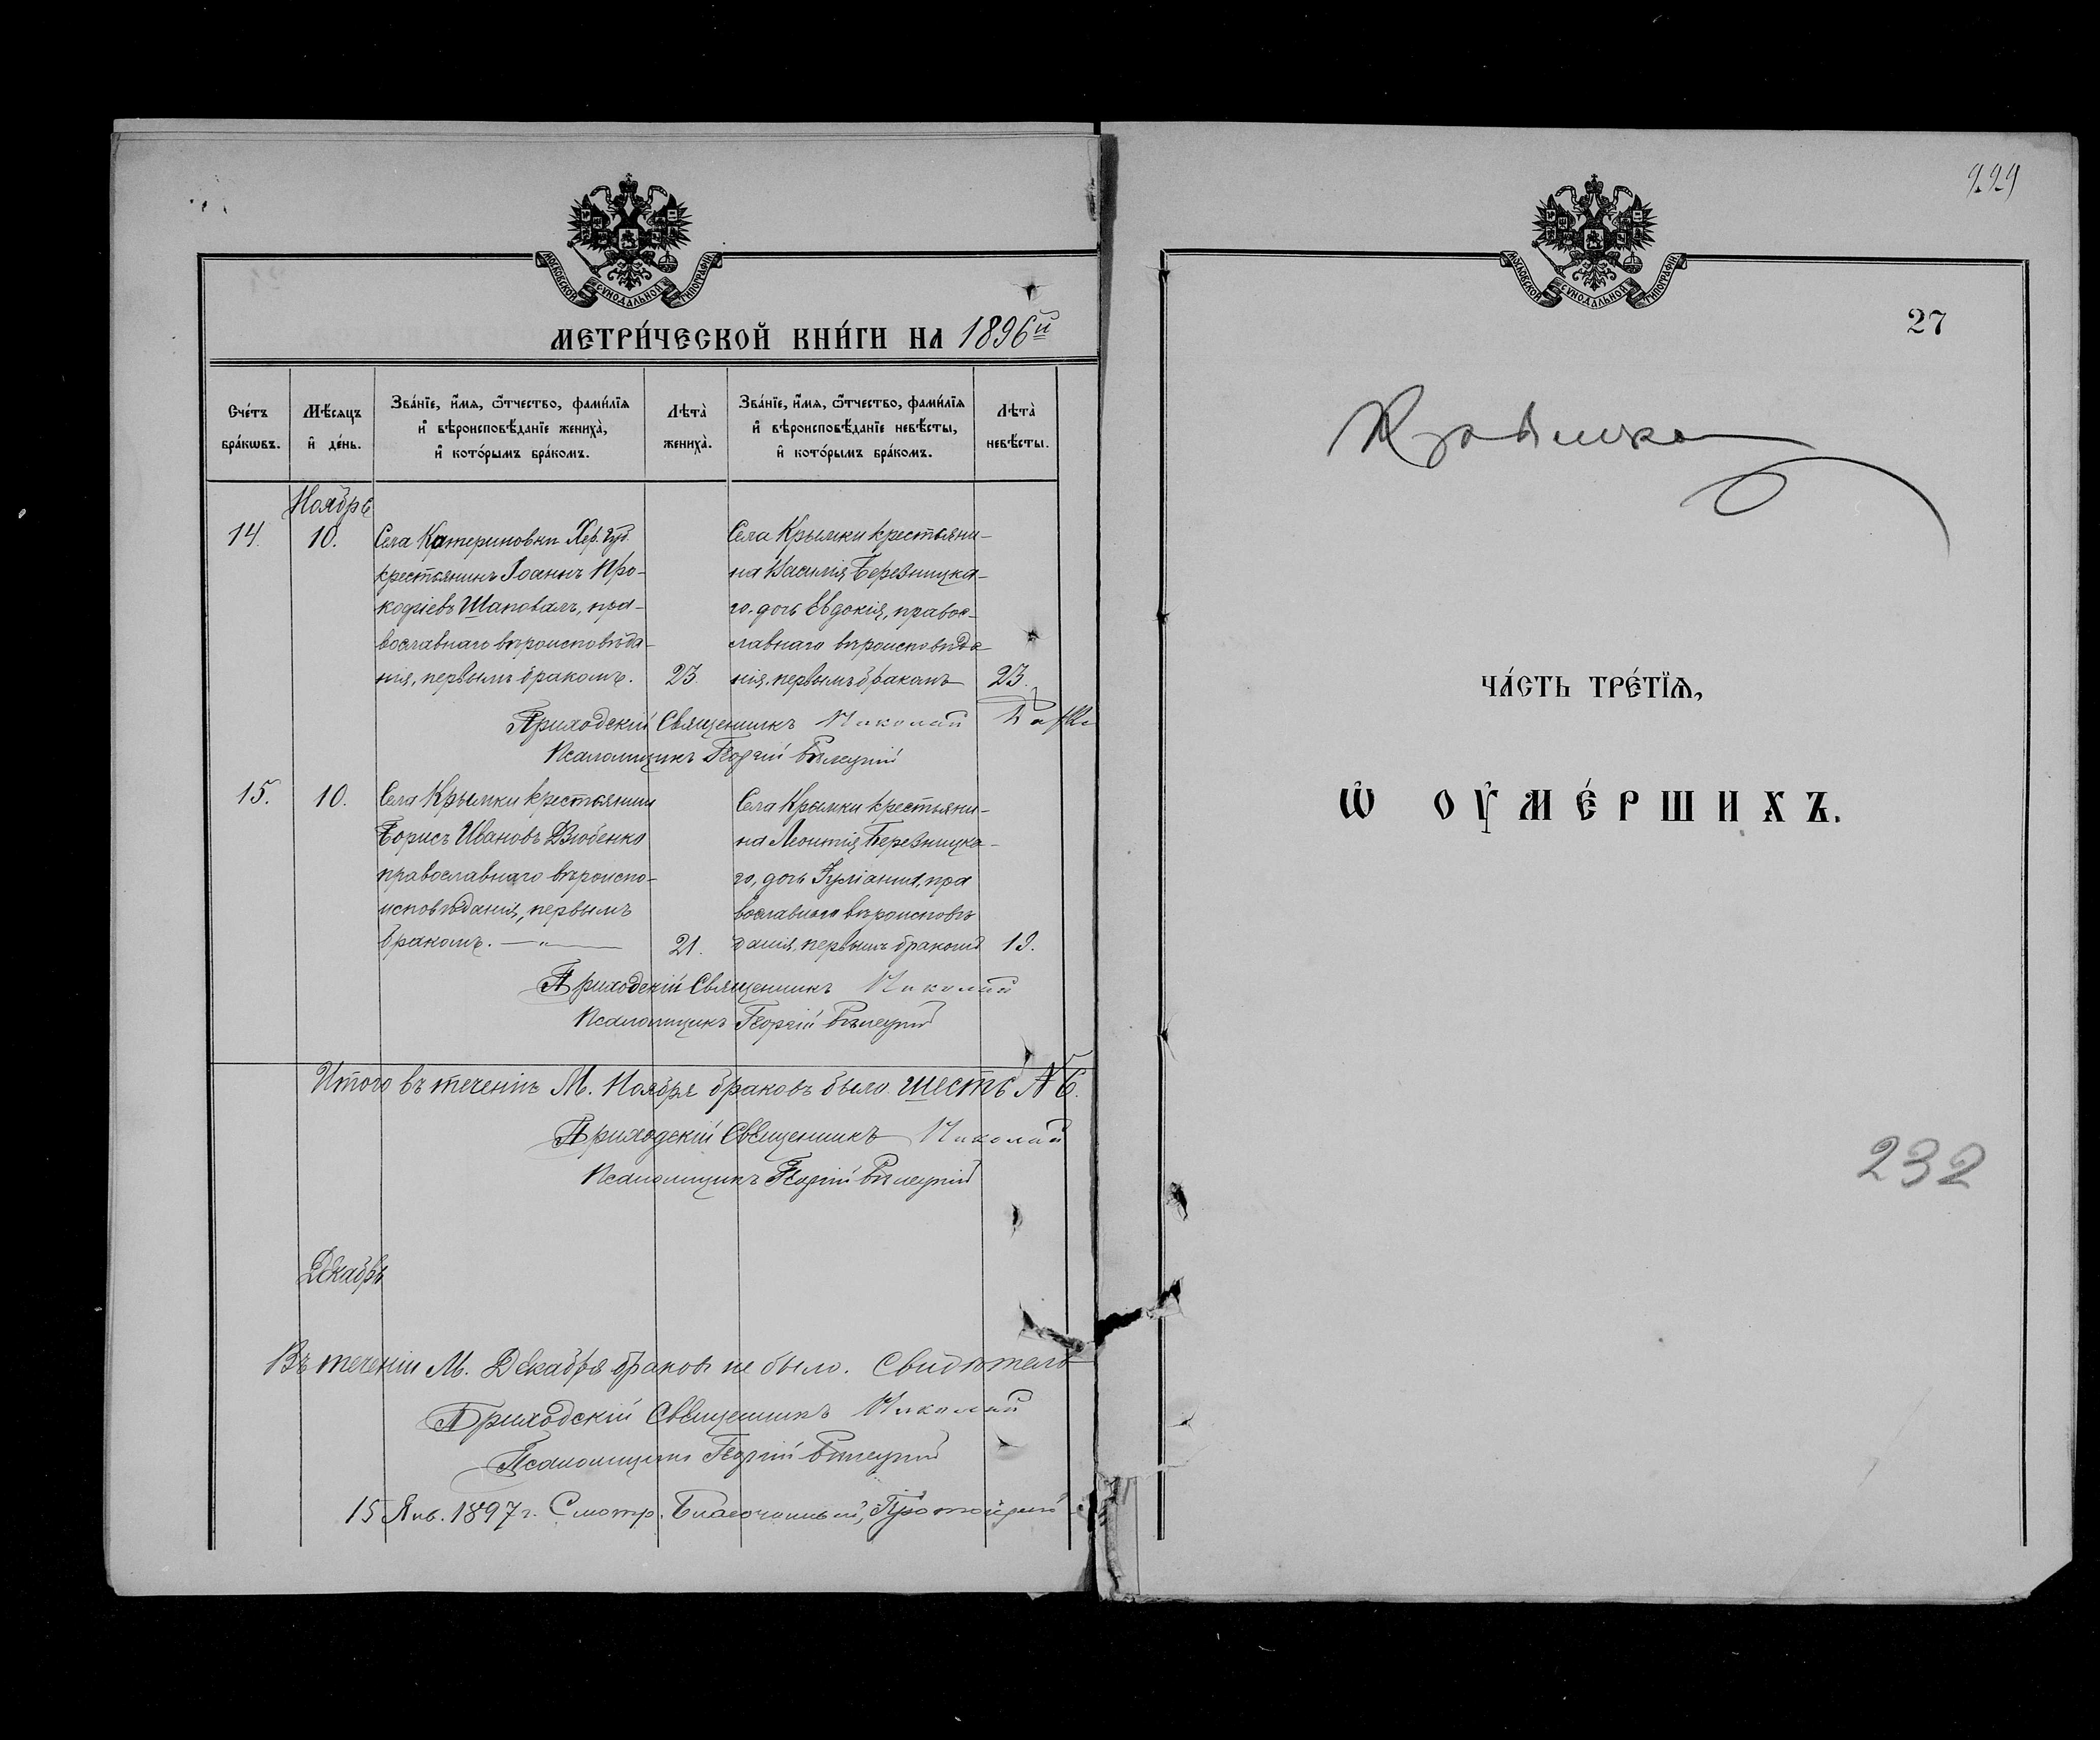 МОСКОВСКОЙ СѴНОДАЛЬНОЙ ТИПОГРАФІИ
МЕТРИ́ЧЕСКОЙ КНИ́ГИ НА 1896й
Сче́тъ бра́кѡвъ.
Мѣ́сяцъ и҆ де́нь.
Зва́нїе, и҆́мѧ, ѻ҆́тчество, фами́лїѧ
и҆ вѣроисповѣ́данїе жениха̀,
и҆ кото́рымъ бра́комъ.
Лѣта̀ жениха̀.
Зва́нїе, и҆́мѧ, ѻ҆́тчество, фами́лїѧ
и҆ вѣроисповѣ́данїе невѣ́сты,
и҆ кото́рымъ бра́комъ.
Лѣта̀ невѣ́сты.
Ноябрь
14.
10.
Села Катериновки Хер. губ.
крестьянинъ Іоаннъ Про-
кофіевъ Шаповалъ, пра-
вославнаго вѣроисповѣда-
нія, первымъ бракомъ.
23.
Села Крымки крестьяни-
на Василія Березницка-
го, дочь Евдокія, право-
славнаго вѣроисповѣда
нія, первымъ бракомъ
23.
Приходскій Священникъ Николай
Псаломщикъ Георгій Бѣлецкій
15.
10.
Села Крымки крестьянин
Борисъ Ивановъ Дзюбенко
православнаго вѣроиспо-
исповѣданія, первымъ
бракомъ. — „ —
21.
Села Крымки крестьяни-
на Леонтія Березницка-
го, дочь Іуліанія, пра
вославнаго вѣроисповѣ
данія, первымъ бракомъ
19.
Приходскій Священникъ Николай
Псаломщикъ Георгій Бѣлецкій
Итого въ теченіи М. Ноября браковъ было шесть № 6.
Приходскій Священникъ Николай
Псаломщикъ Георгій Бѣлецкій
Декабрь
Въ теченіи М. Декабря браковъ не было.
Приходскій Священникъ Николай
Псаломщикъ Георгій Бѣлецкій
15 Янв. 1897 г. Смотр. Благочинный, Протоіерей
229
МОСКОВСКОЙ СѴНОДАЛЬНОЙ ТИПОГРАФІИ
27
Крымка
ЧА́СТЬ ТРЕ́ТЇѦ,
Ѡ҆ ОУ҆МЕ́РШИХЪ.
232